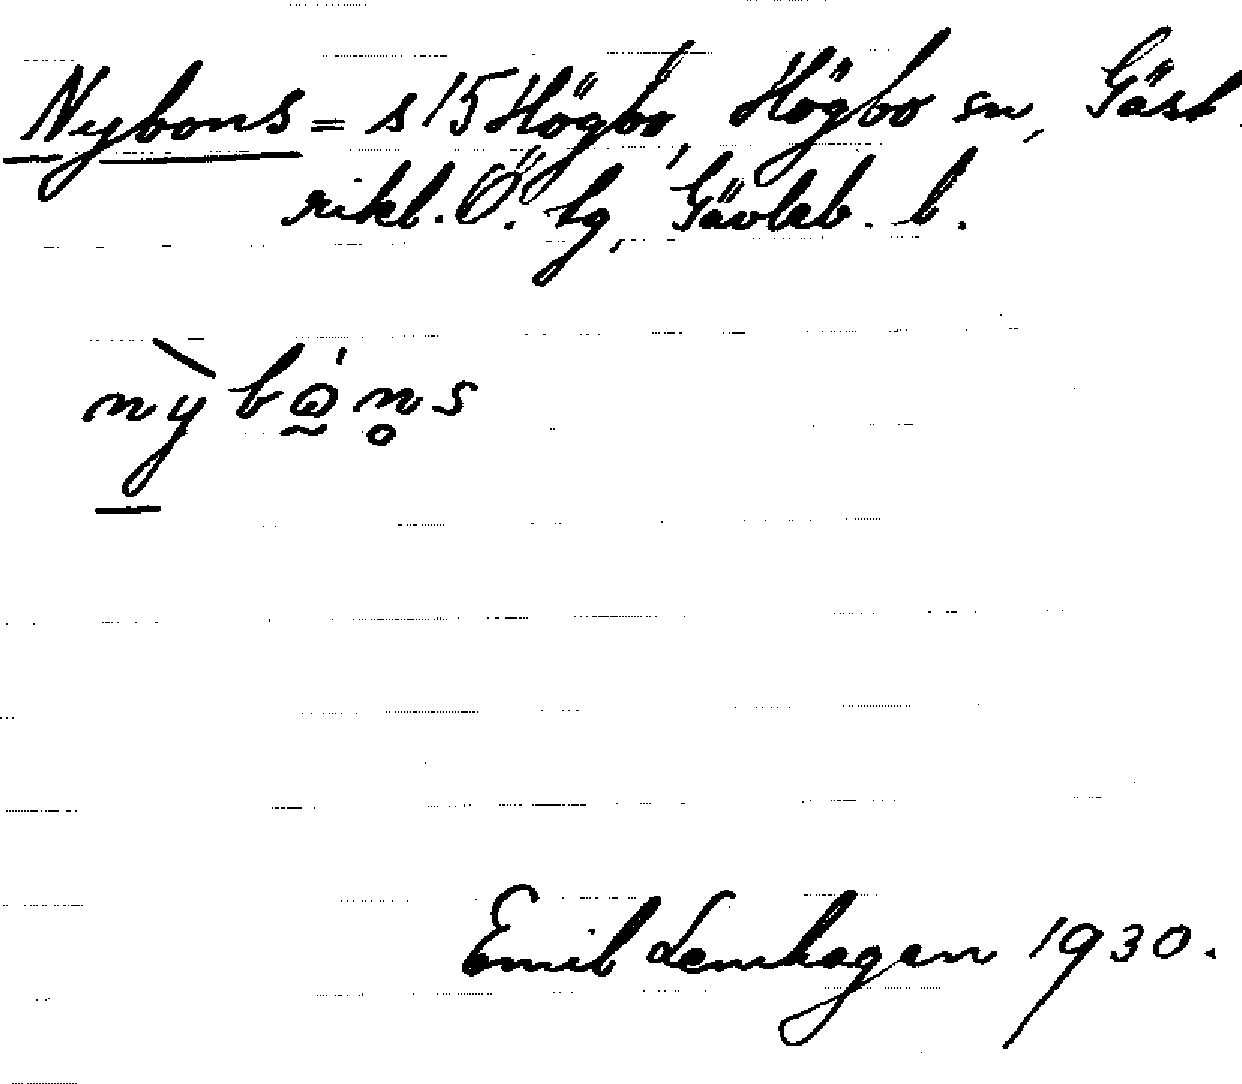 Nybons = s 15 Högbo, Högbo sn, Gäst
rikl. Ö. hg, Gävleb. l.
nỳbǫ̰́n̥s
Emil Lenhagen 1930.